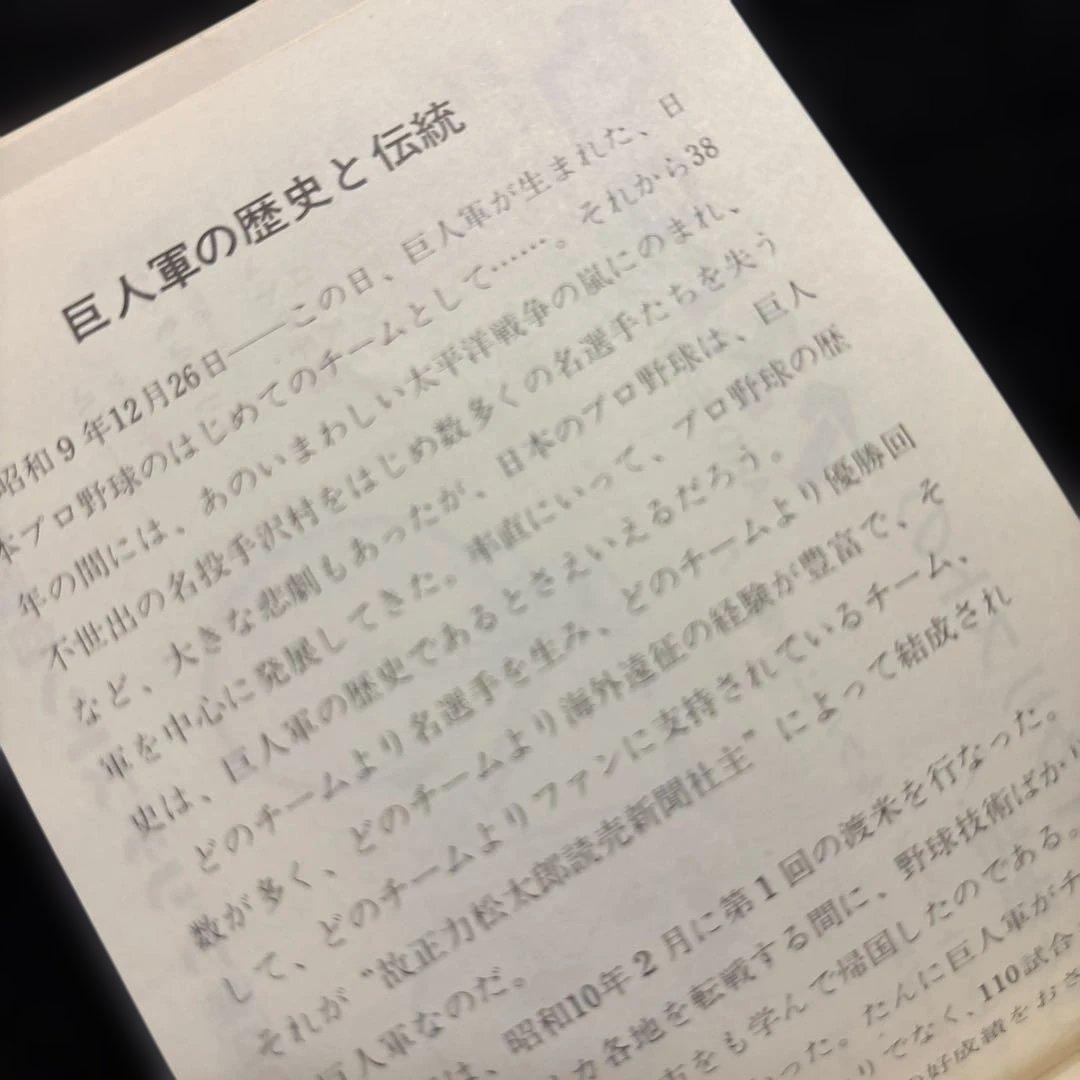 巨人軍の歴史と伝統
昭和9年12月26日――この日、巨人軍が生まれた、日
本プロ野球のはじめてのチームとして……。それから38
年の間には、あのいまわしい太平洋戦争の嵐にのまれ、
不世出の名投手沢村をはじめ数多くの名選手たちを失う
など、大きな悲劇もあったが、日本のプロ野球は、巨人
軍を中心に発展してきた。率直にいって、プロ野球の歴
史は、巨人軍の歴史であるとさえいえるだろう。
どのチームより名選手を生み、どのチームより優勝回
数が多く、どのチームより海外遠征の経験が豊富で、そ
して、どのチームよりファンに支持されているチーム、
それが“故正力松太郎読売新聞社主”によって結成され
巨人軍なのだ。
は、昭和10年2月に第1回の渡米を行なった。
カ各地を転戦する間に、野球技術ばかり
をも学んで帰国したのである。
った。たんに巨人軍がチ
りでなく、110試合
好成績をおさ